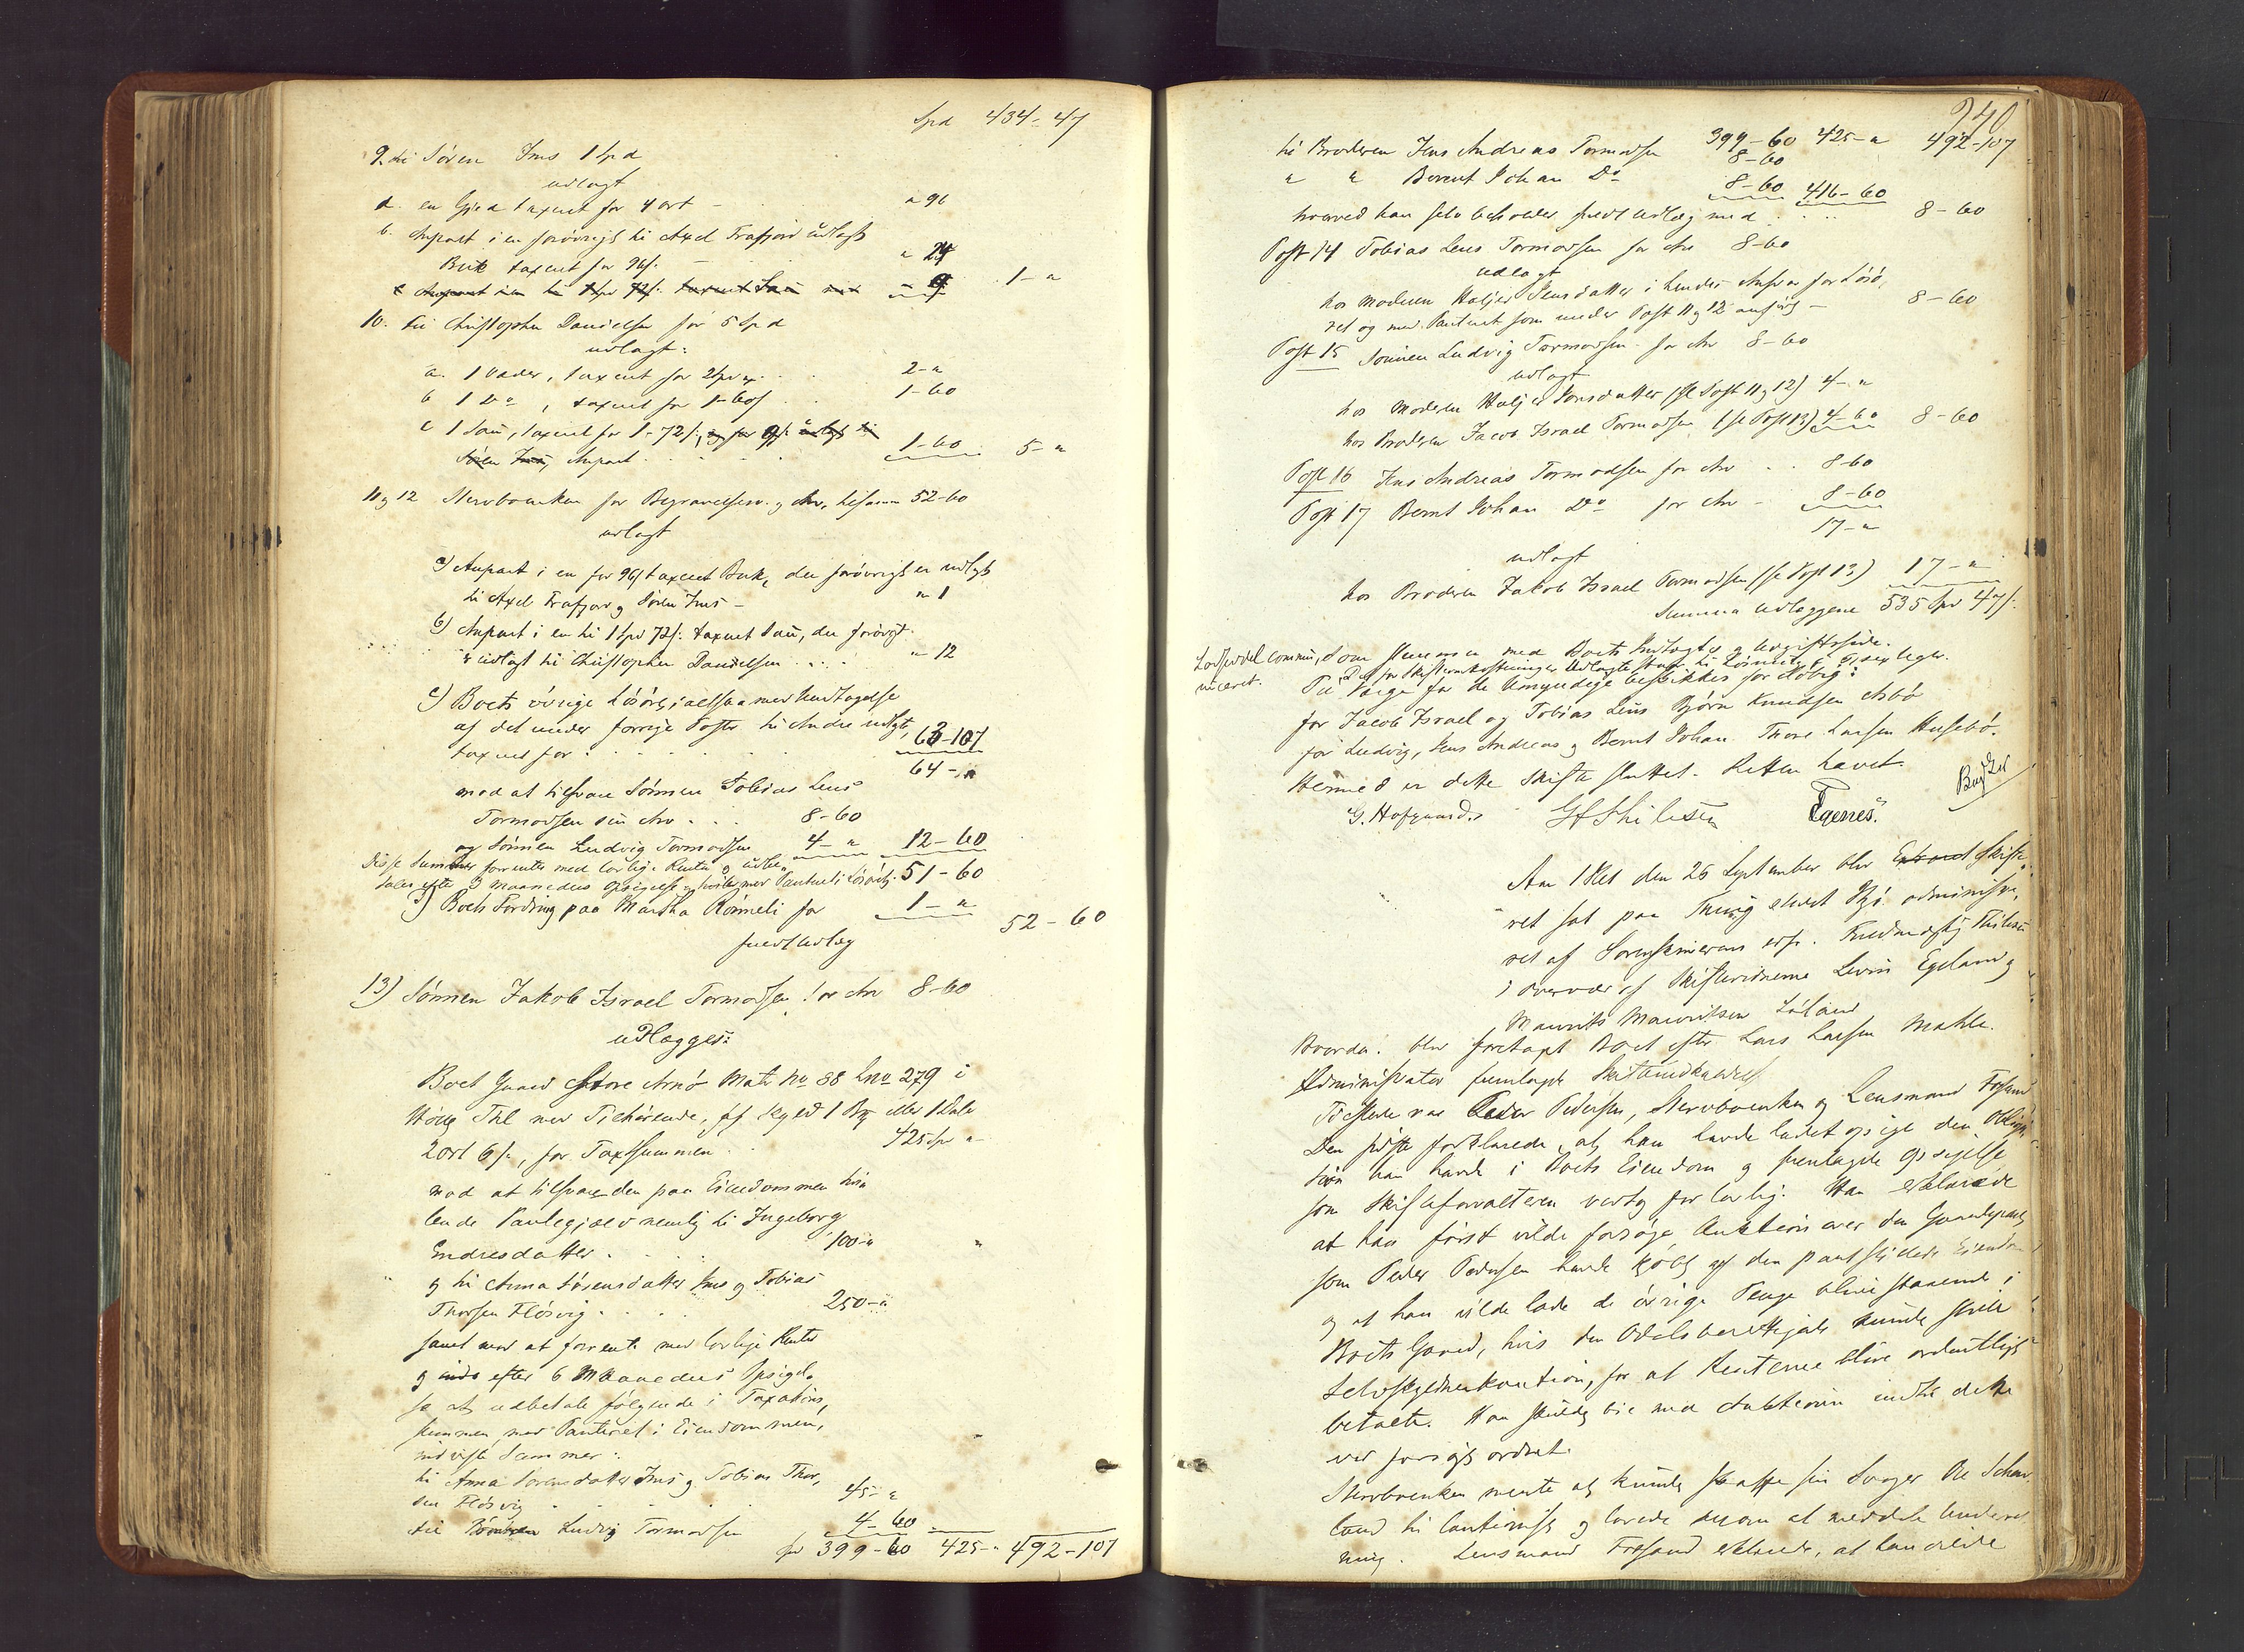 Spd 434 - 47
9. til Søren Ims 1 Spd
udlagt
a. en Gjed taxeret for 4 ort - " 96
b. Anpart i en forøvrigt til Axel Frafjord udlagt
Buk taxeret for 96 s. - " 24 . 1 - "
10. til Christopher Danielsen for 5 Spd
udlagt:
a. 1 Væder, taxeret for 2 Spd . . 2 - "
b 1 Do , taxeret for 1 - 60 s . . 1 - 60
c 1 Sau, taxeret for 1 - 72 s.
Anpart . . . 1 - 60 . 5 - "
11 og 12 Stervboenken for Begravelsesomk. og Arv, tilsamm 52 - 60
udlagt
a) Anpart i en for 96 s taxeret Buk, der forøvrigt er udlagt
til Axel Frafjord og Søren Ims - " 1
b) Anpart i en til 1 Spd 72 s. taxeret Sau, der forøvrigt
er udlagt til Christopher Danielsen . . . . " 12
c) Boets øvrige Løsøre, altsaa med Undtagelse
af det under forrige Poster til Andre udlagt,
taxeret for . . . . 63 - 107
64 - "
mod at tilsvare Sønnen Tobias Lens
Tormodsen sin Arv . . . 8 - 60
og Sønnen Ludvig Tormodsen 4 - " 12 - 60
Disse Summer forrentes med lovlige Renter og udbe-
tales efter 3 Maaneders Opsigelse med Panteret i Løsøret. 51 - 60
d) Boets Fordring paa Martha Rønneli for 1 - "
52 - 60
fuldt Udlæg
13) Sønnen Jakob Israel Tormodsen for Arv 8 - 60
udlægges:
Boets Gaard Store Arnø Matr No 88 Lno 279 i
Høle Thl med Tilhørende, af Skyld 1 Daler
2 ort 6 s., for Taxtsummen . 425 Spd "
mod at tilsvare den paa Eiendommen hvi-
lende Pantegjæld nemlig til Ingeborg
Endresdatter . . . 100 - "
og til Anna Sørensdatter Ims og Tobias
Thorsen Fløsvig . . . 250 - "
samt mod at forrente med lovlige Renter
og efter 6 Maaneders Opsigel-
se at udbetale følgende i Taxations-
summen med Panteret i Eiendommen,
indviste Summer:
til Anna Sørensdatter Ims og Tobias Thor-
sen Fløsvig . . . 45 - "
til Ludvig Tormodsen 4 - 60
Spd 399 - 60 425 - " 492 - 107
240
399 - 60 425 - " 492 - 107
til Broderen Jens Andreas Tormodsen 8 - 60
" " Berent Johan Do 8 - 60 416 - 60
hvorved han selv beholder fuldt Udlæg med . . . 8 - 60
Post 14 Tobias Lens Tormodsen for Arv 8 - 60
udlagt
hos Moderen Jonsdatter i hendes Ansvar for Løsø-
ret og med Panteret som under Post 11 og 12 anført - 8 - 60
Post 15 Sønnen Ludvig Tormodsen for Arv 8 - 60
udlagt
hos Moderen Jonsdatter (se Post 11 og 12) 4 - "
hos Broderen Jacob Israel Tormodsen (se Post 13) 4 - 60 8 - 60
Post 16 Jens Andreas Tormodsen for Arv . . 8 - 60
Post 17 Bernt Johan Do for Arv - 8 - 60
17 - "
udlagt
hos Broderen Jakob Israel Tormodsen (se Post 13) 17 - "
Summa Udlæggene 535 Spd 47 s.
som stemmer med Boets Indtægts og Udgiftsside.
Til Værge for de Umyndige beskikkes for Arving:
for Jacob Israel og Tobias Lens Bjørn Knudsen Arbø
for Ludvig, Jens Andreas og Bernt Johan Thore Larsen Husebø.
Hermed er dette Skifte sluttet. Retten hævet.
G. Hofgaard. Egenes.
Aar 1861 den 26 September blev Skifte-
ret sat paa administre-
ret af Sorenskriverens
i Overvær af Skiftevidnerne Levin Egeland og
Maurits Mauritsen Løland
Hvorda: blev foretaget Boet efter Lars Larsen Mahle.
Administrator fremlagde
Tilstede var Peder Pedersen, Stervboenken og Lensmand Fosand
Den første forklarede, at han havde ladet opsige den Obliga-
tion han havde i Boets Eiendom og fremlagde Opsigelse
som Skifteforvalteren vedtog for lovlig. Han erklærede
at han først vilde forsøge Auktion over den Gaardepart,
som Peder Pedersen havde kjøbt af den pantstillede Eiendom
og at han vilde lade de øvrige Penge blive staaende i
Boets Gaard, hvis den Odelsberettigede kunde stille
Selvskyldnerkaution, for at Renterne blive ordentligt
betalte. Han skulde bie med Auktionen indtil dette
var forsøgt ordnet.
Stervboenken mente at kunde skaffe sin Svoger Ole
land til Cautionist og lovede snarer at meddele Underret-
ning. Lensmand Fosand erklærede, at han vilde